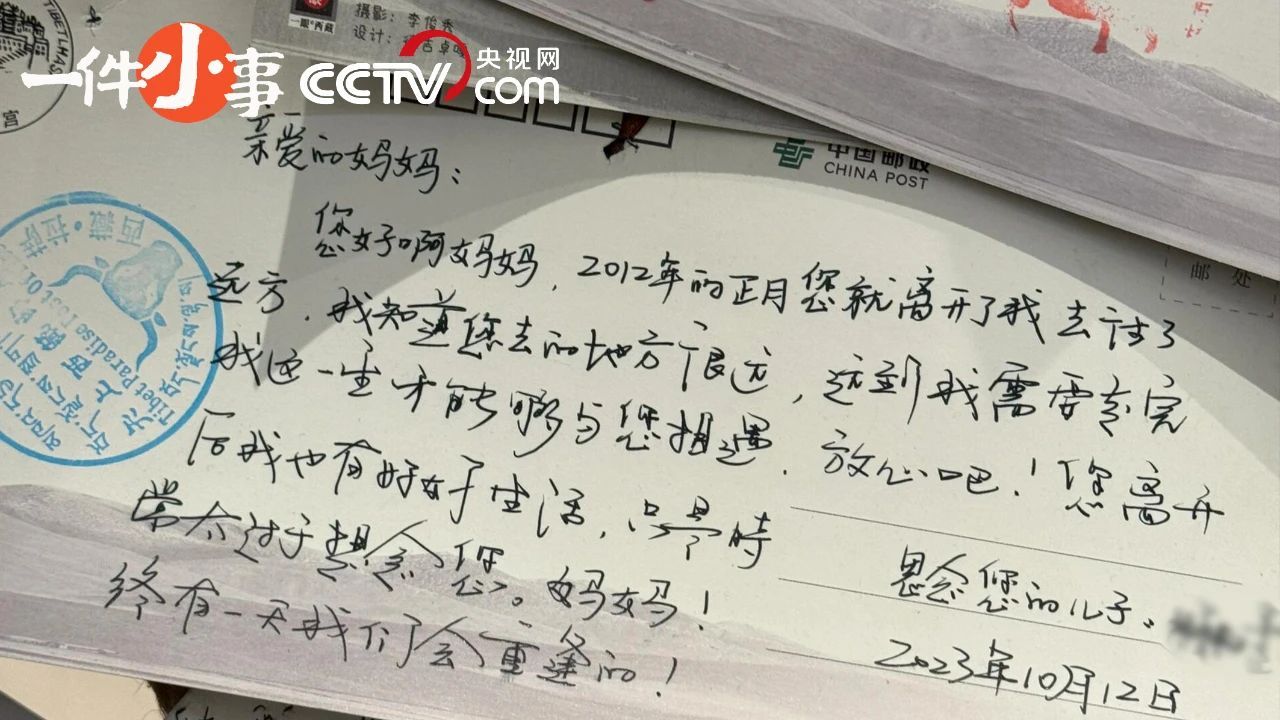 一件小事 CCTV.com 央视网
摄影：李俊秀
设计：
一眼西藏
宫
中国邮政
CHINA POST
邮 处
西藏·拉萨
天上西藏
Tibet Paradise
亲爱的妈妈：
您好啊妈妈，2012年的正月您就离开了我去往了
远方，我知道您去的地方很远，远到我需要走完
我这一生才能够与您相遇，放心吧！您离开
后我也有好好生活，只是时
常太过于想念您。妈妈！
终有一天我们会重逢的！
思念您的儿子，
2023年10月12日